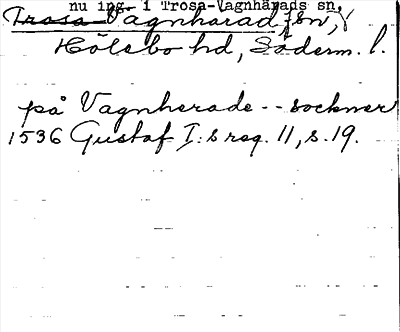 nu ing. i Trosa-Vagnhärads sn,
Trosa-Vagnhärad sn,
Hölebo hd, Söderm. l.
på Vagnherade -- sockner
1536 Gustaf I:s reg. 11, s. 19.